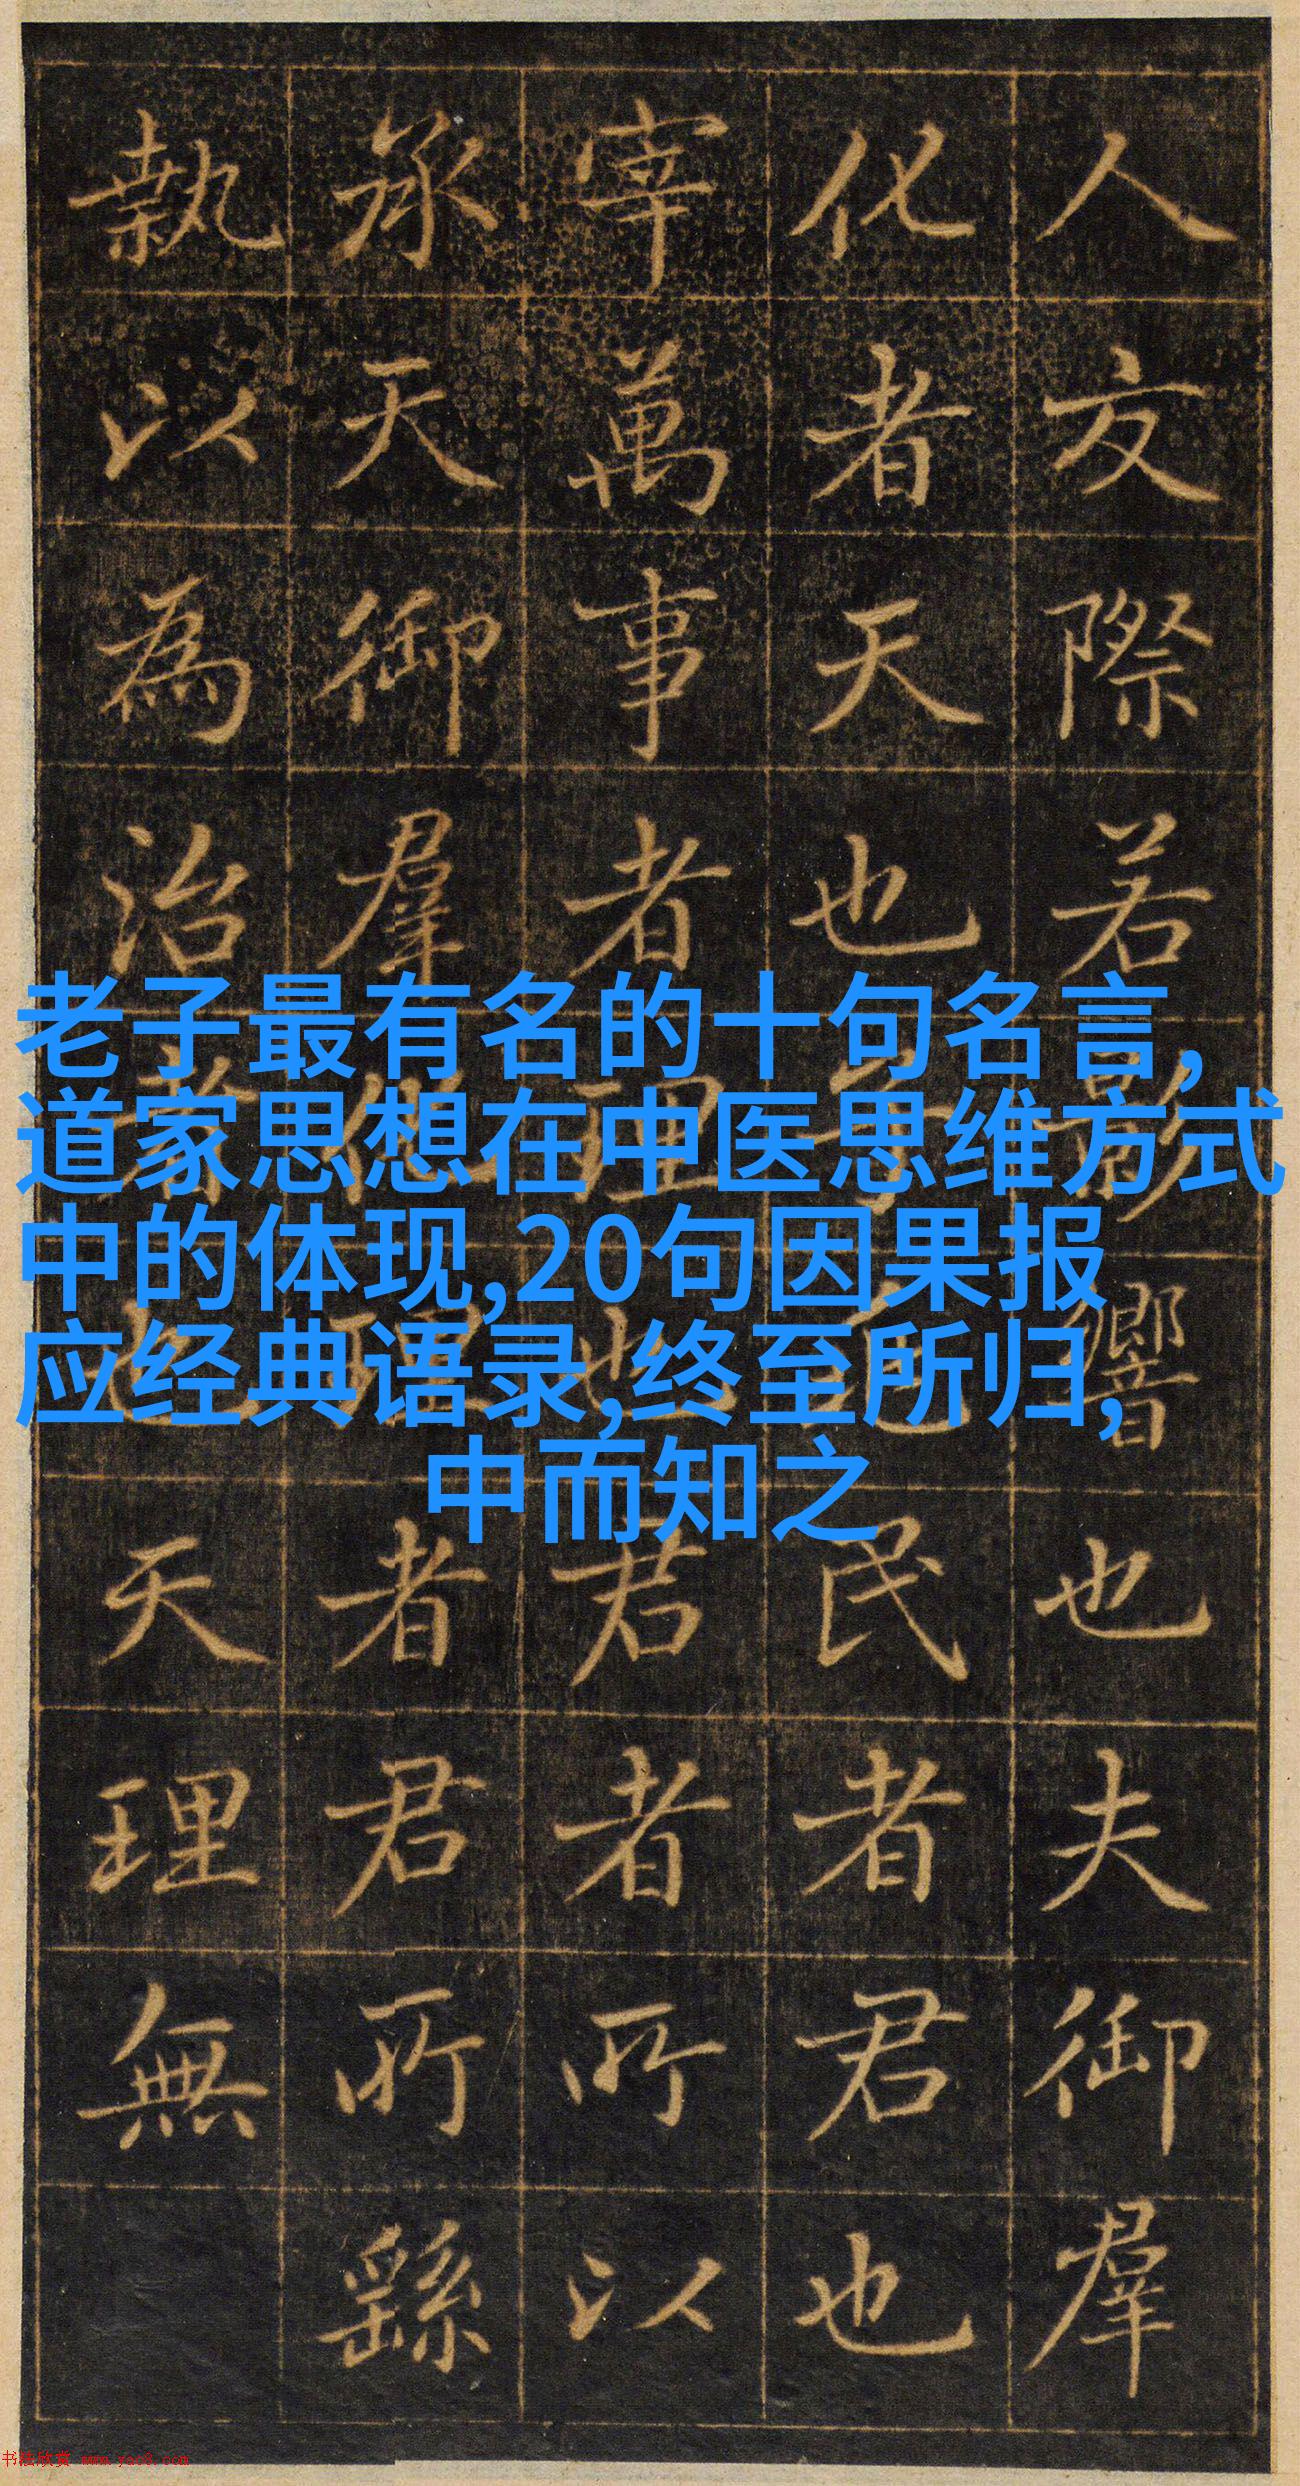 人交際若影響也夫御羣
化者天也民者君也
宰萬事者理也君者所以
承天御羣化理者君所繇
執以為治者也天理無
老子最有名的十句名言,
道家思想在中医思维方式
中的体现,20句因果报
应经典语录,终至所归,
中而知之
书法欣赏 www.yac8.com